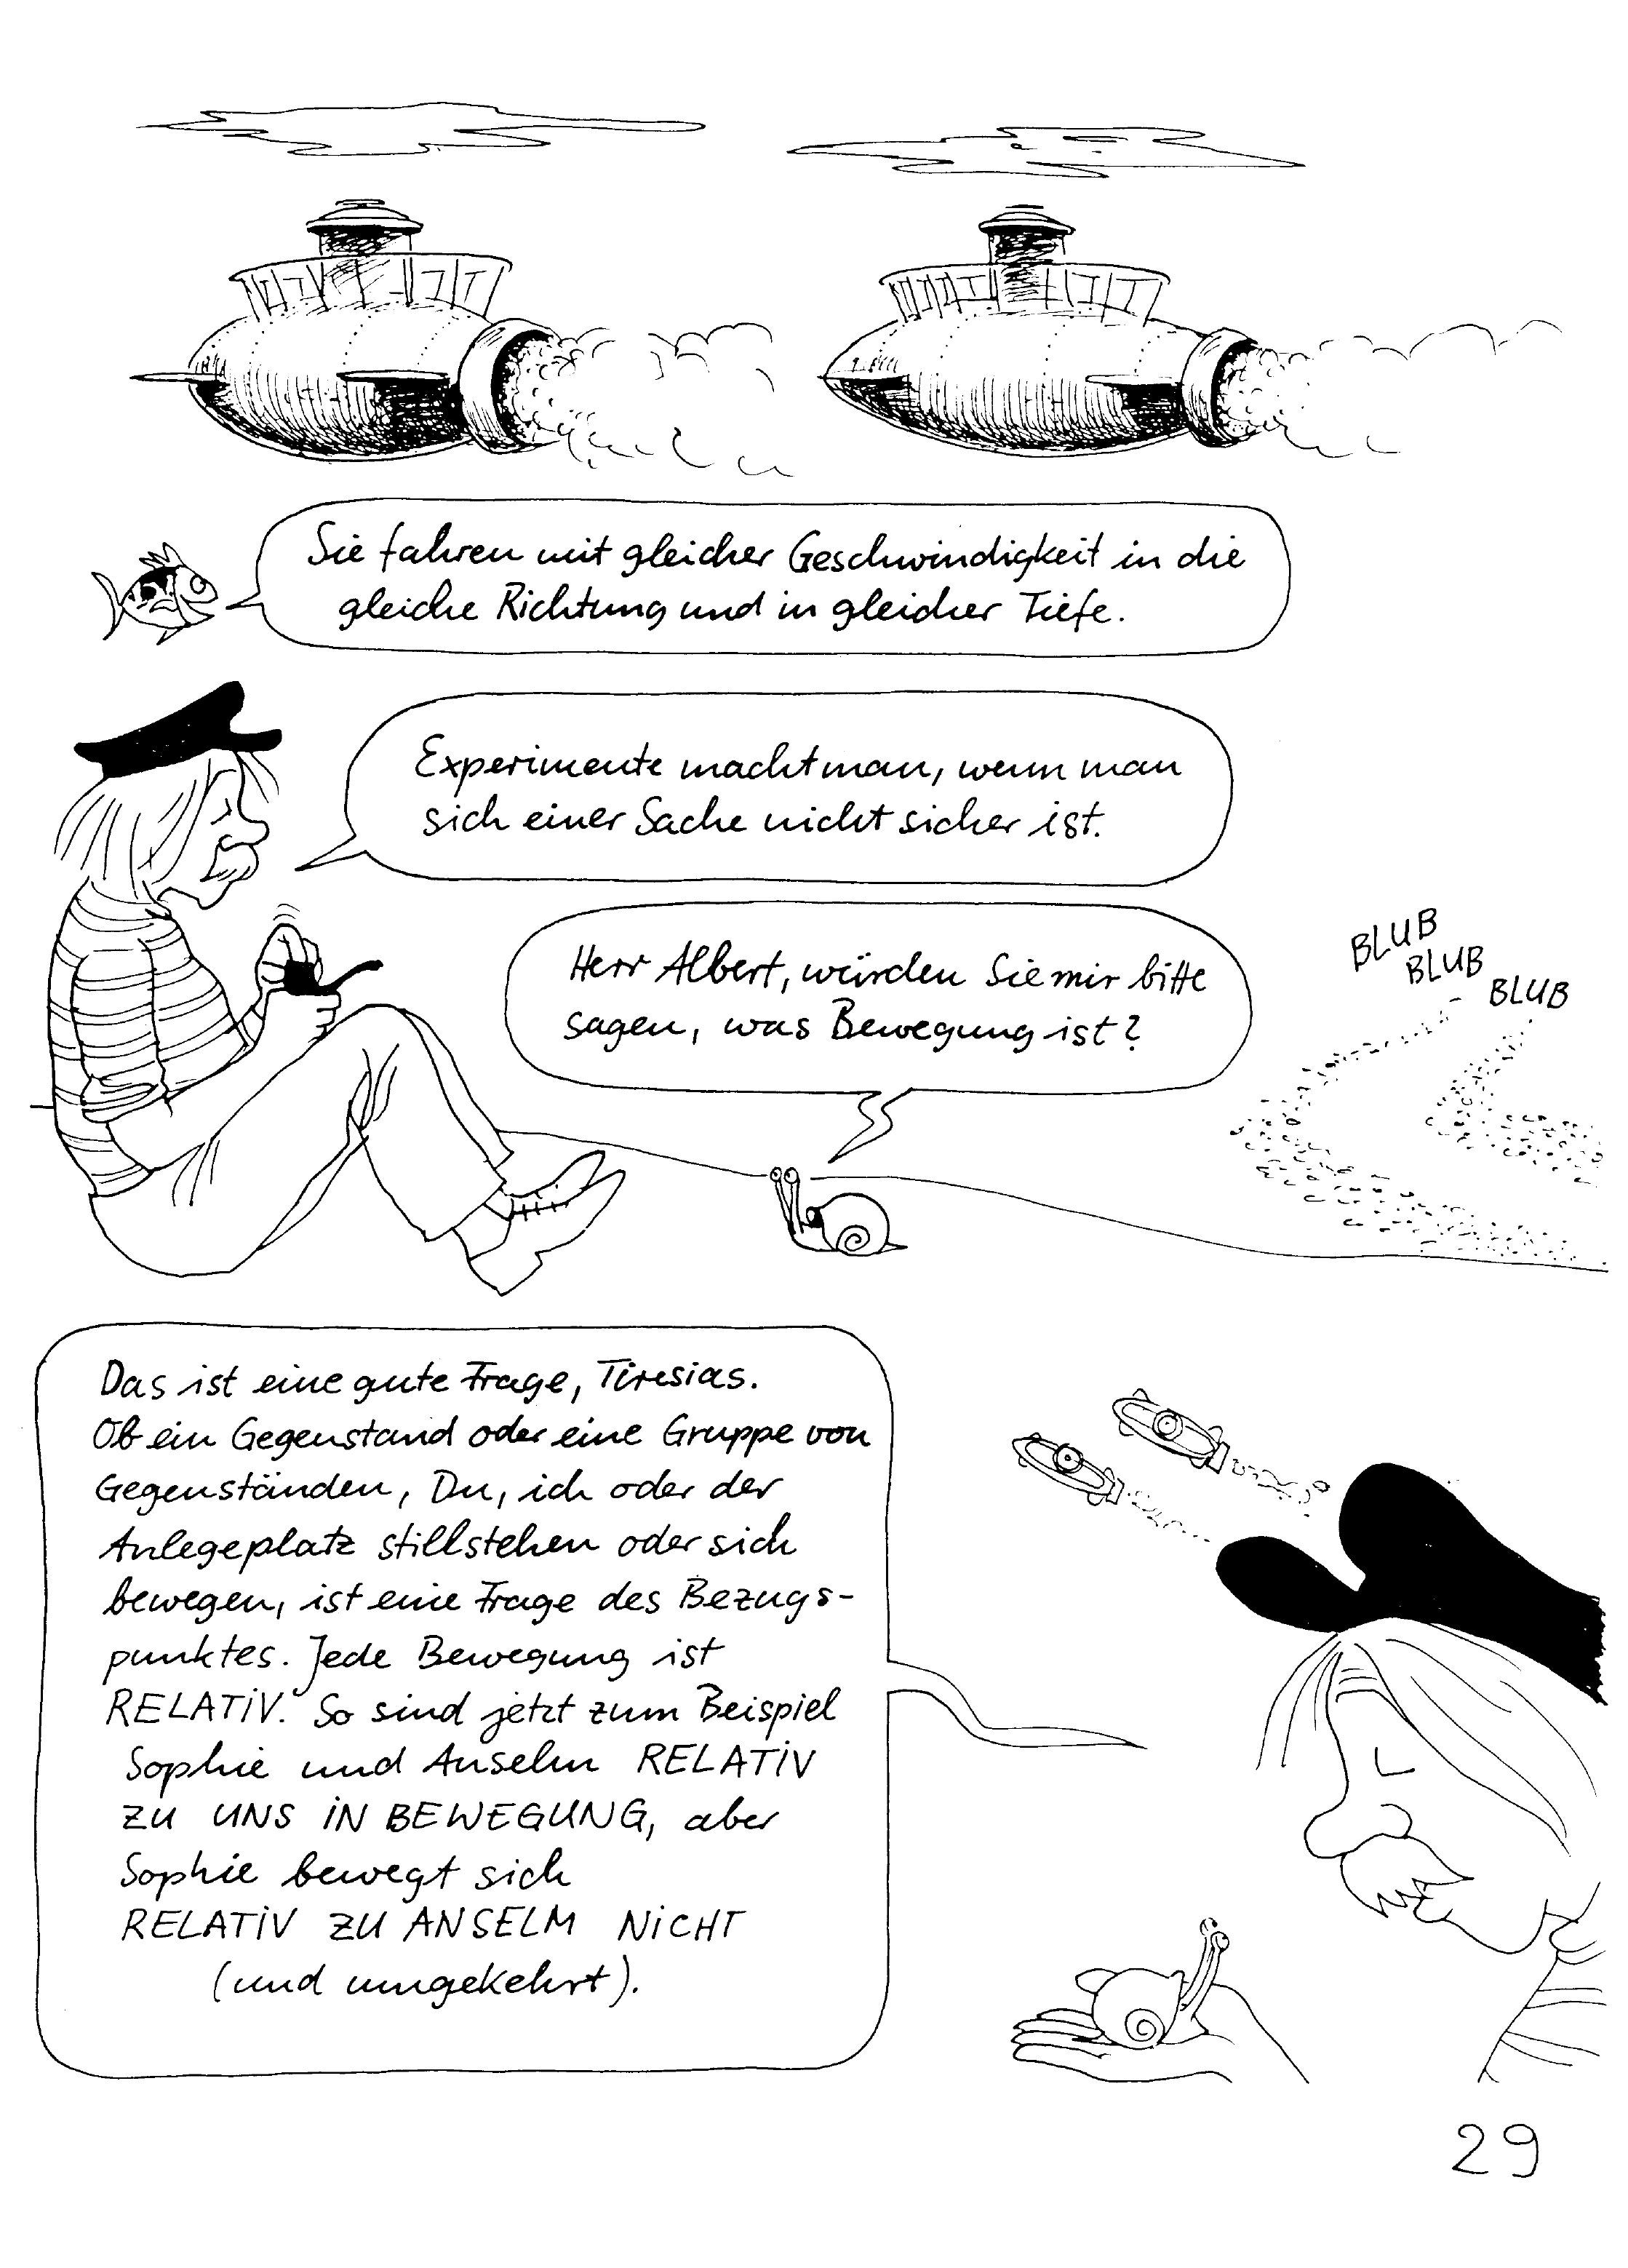 Sie fahren mit gleicher Geschwindigkeit in die
gleiche Richtung und in gleicher Tiefe.
Experimente macht man, wenn man
sich einer Sache nicht sicher ist.
Herr Albert, würden Sie mir bitte
sagen, was Bewegung ist?
BLUB
BLUB
BLUB
Das ist eine gute Frage, Tiresias.
Ob ein Gegenstand oder eine Gruppe von
Gegenständen, Du, ich oder der
Anlegeplatz stillstehen oder sich
bewegen, ist eine Frage des Bezugs-
punktes. Jede Bewegung ist
RELATiV. So sind jetzt zum Beispiel
Sophie und Anselm RELATiV
ZU UNS iN BEWEGUNG, aber
Sophie bewegt sich
RELATiV ZU ANSELM NiCHT
(und umgekehrt).
29